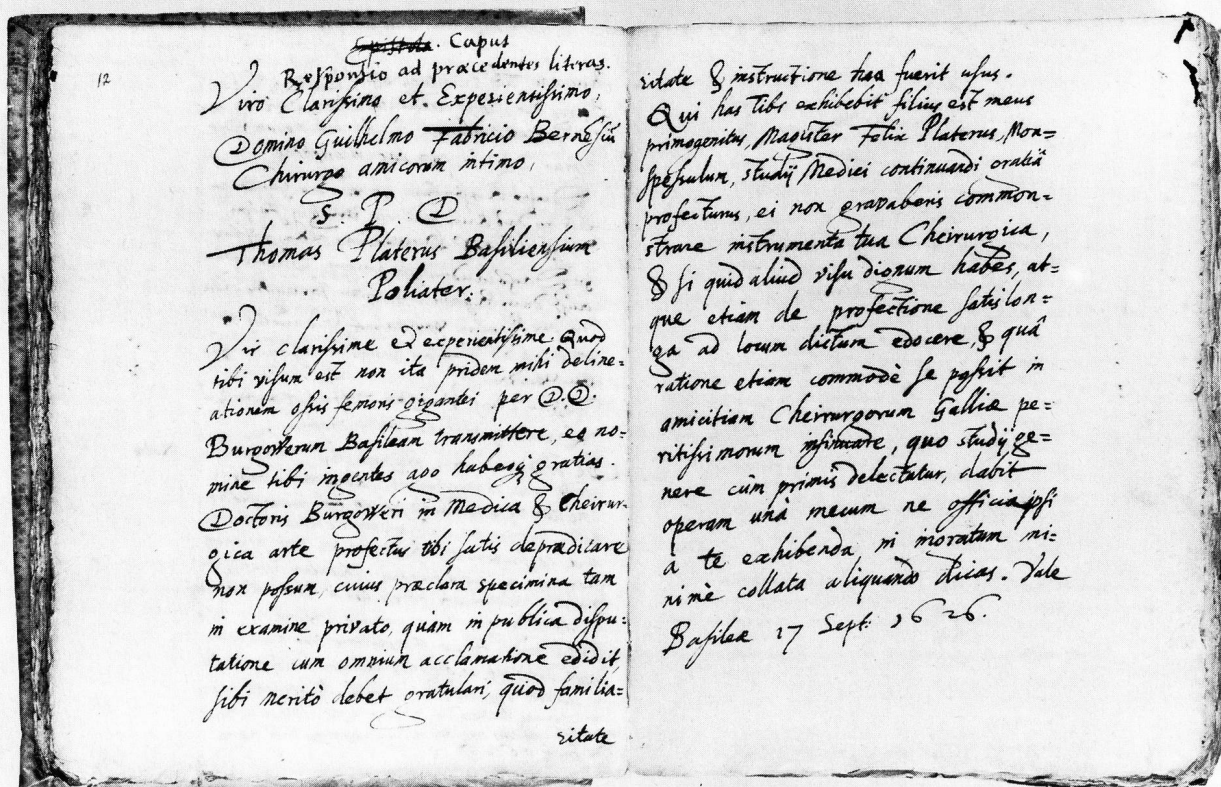 12
Epistola. Capus
Responsio ad præcedentes literas.
Viro Clarissimo et Experientissimo,
Domino Guilhelmo Fabricio Bernesiū
Chirurgo amicorum intimo,
S. P. D
Thomas Platerus Basiliensium
Poliater.
Vir clarissime et experientissime Quod
tibi visum est non ita pridem mihi deline=
ationem ossis femoris gigantei per D.D.
Burgowerum Basileam transmittere, eo no=
mine tibi ingentes ago habeoq̃ gratias.
Doctoris Burgoweri in Medica & Cheirur=
gica arte profectus tibi satis deprædicare
non possum, cuius præclara specimina tam
in examine privato, quam in publica dispu=
tatione cum omnium acclamatione edidit,
sibi meritò debet gratulari, quod familia=
ritate
ritate & instructione tua fuerit usus.
Qui has tibi exhibebit filius est meus
primogenitus, Magister Felix Platerus, Mon=
spessulum, studij Medici continuandi gratiâ
profecturus, ei non gravaberis common=
strare instrumenta tua Cheirurgica,
& si quid aliud visu dignum habes, at=
que etiam de profectione satis lon=
ga ad locum dictum edocere, & quâ
ratione etiam commodè se possit in
amicitiam Cheirurgorum Galliæ pe=
ritissimorum insinuare, quo studij ge=
nere cùm primis delectatur, dabit
operam unà mecum ne officia ipsi
a te exhibenda, in ingratum mi=
nimè collata aliquando dicas. Vale
Basileæ 17 Sept. 1626.